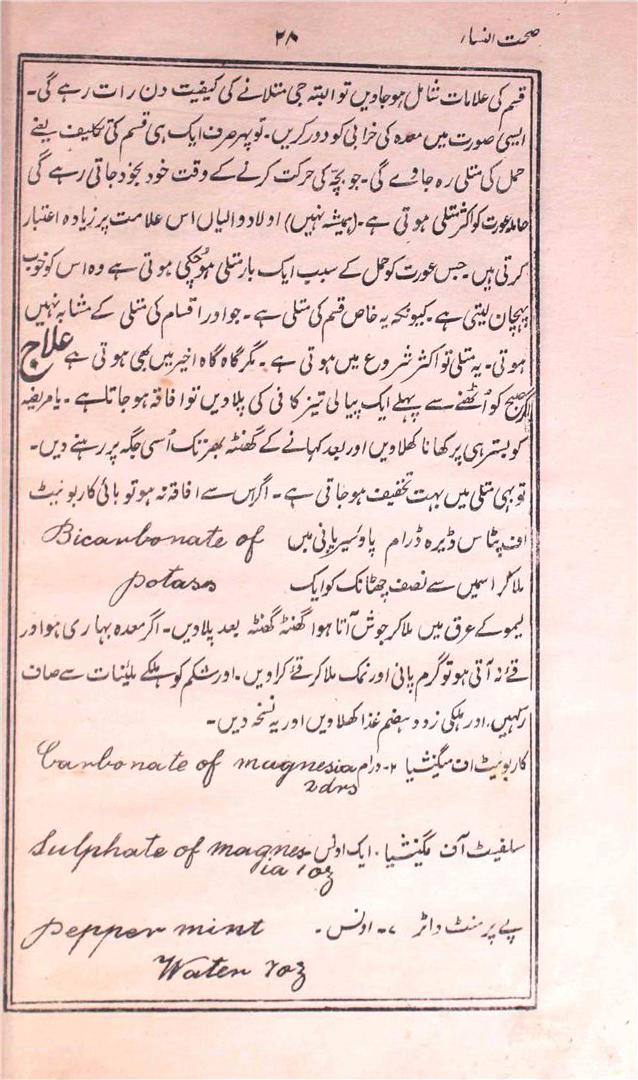 صحت النساء ۲۸
قسم کی علامات شامل ہوجاویں تو البتہ جی متلانے کی کیفیت دن رات رہے گی۔
ایسی صورت میں معدہ کی خرابی کو دور کریں۔ تو پھر صرف ایک ہی قسم کی تکلیف یعنے
حمل کی متلی رہ جاوے گی۔ جو بچہ کی حرکت کرنے کے وقت خود بخود جاتی رہے گی
حاملہ عورت کو اکثر متلی ہوتی ہے۔ (ہمیشہ نہیں) اولاد والیاں اس علامت پر زیادہ اعتبار
کرتی ہیں۔ جس عورت کو حمل کے سبب ایک بار متلی ہوچکی ہوتی ہے وہ اس کو خوب
پہچان لیتی ہے۔ کیونکہ یہ خاص قسم کی متلی ہے۔ جو اور اقسام کی متلی کے مشابہ نہیں
ہوتی۔ یہ متلی تو اکثر شروع میں ہوتی ہے۔ مگر گاہ گاہ اخیر میں بھی ہوتی ہے علاج
اگر صبح کو اُٹھنے سے پہلے ایک پیالی تیز کافی کی پلا دیں تو افاقہ ہوجاتا ہے۔ یا مریضہ
کو بستر ہی پر کھانا کھلاویں اور بعد کہانے کے گھنٹہ بھر تک اُسی جگہ پر رہنے دیں۔
تو بھی متلی میں بہت تخفیف ہوجاتی ہے۔ اگر اس سے افاقہ نہ ہو تو بائی کاربونیٹ
اف پٹاس ڈیرہ ڈرام پاؤ سیر پانی میں Bicarbonate of
ملا کر اسمیں سے نصف چھٹانک کو ایک potass
لیمو کے عرق میں ملا کر جوش آتا ہوا گھنٹہ گھنٹہ بعد پلا دیں۔ اگر معدہ بہاری ہو اور
قئے نہ آتی ہو تو گرم پانی اور نمک ملا کر قئے کرا دیں۔ اور شکم کو ہلکے ملینات سے صاف
رکہیں، اور ہلکی زود ہضم غذا کھلاویں اور یہ نسخہ دیں۔
کاربونیٹ اف میگنشیا ۲۔ درام Carbonate of magnesia
2drs
سلفیٹ آف مگنیشیا۔ ایک اونس Sulphate of magnes-
ia 1oz
پے پرمنٹ واٹر ۷۔ اونس۔ pepper mint
Water 7oz